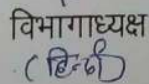 विभागाध्यक्ष
(हिन्दी)